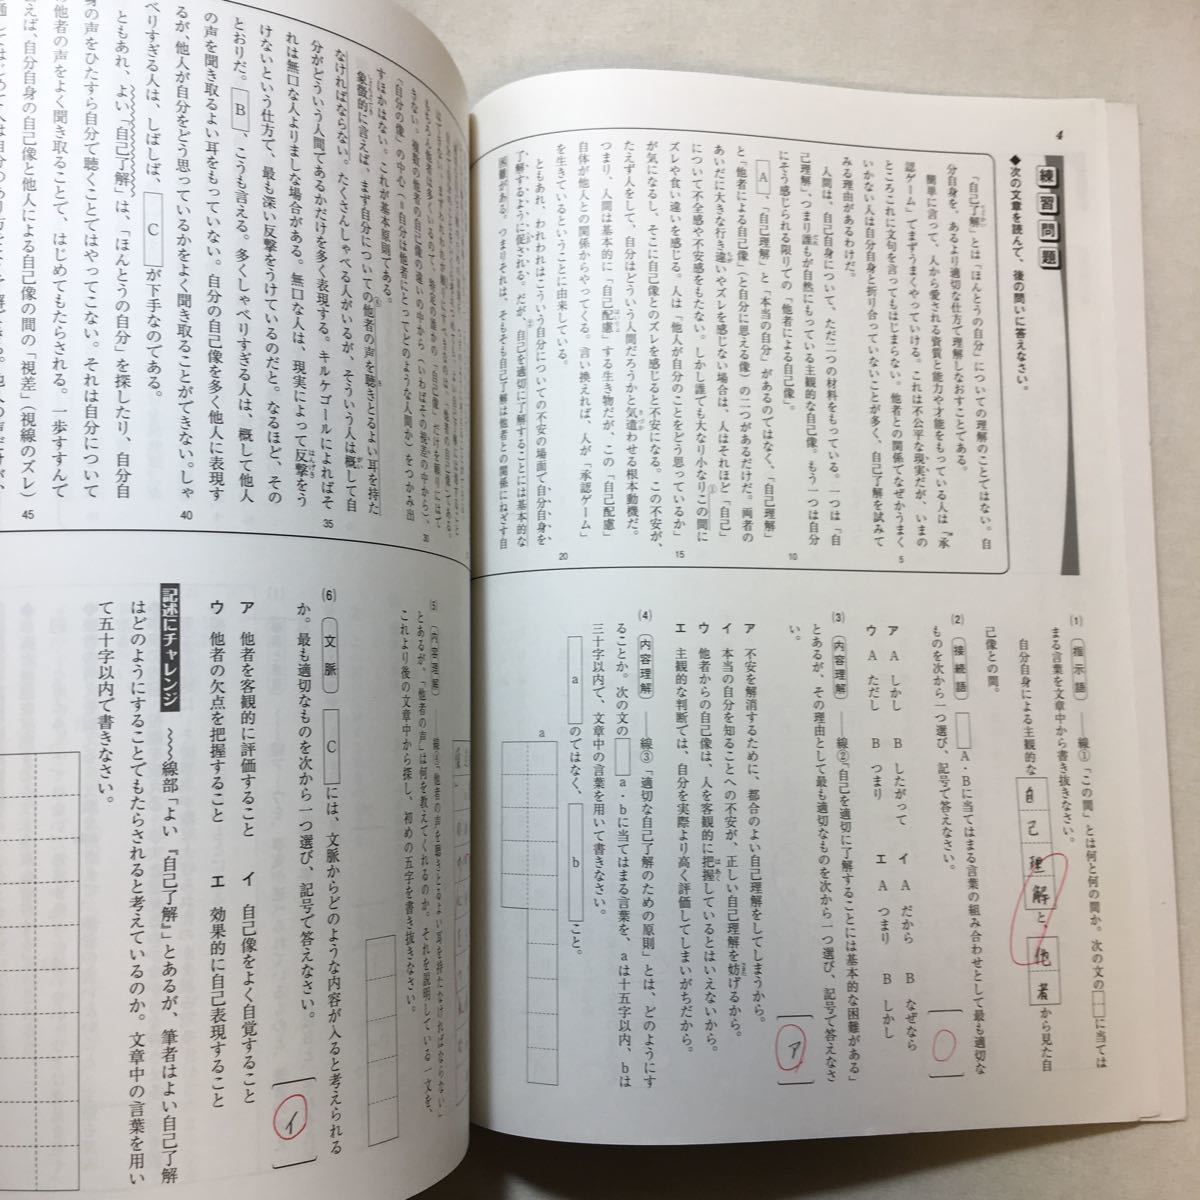 4
練習問題
◆次の文章を読んで、後の問いに答えなさい。
「自己了解」とは「ほんとうの自分」についての理解のことではない。自
分自身を、あるより適切な仕方で理解しなおすことである。
簡単に言って、人から愛される資質と能力や才能をもっている人は「承
認ゲーム」でまずうまくやっていける。これは不公平な現実だが、いまの
ところこれに文句を言ってもはじまらない。他者との関係でなぜかうまく
いかない人は自分自身と折り合っていないことが多く、自己了解を試みて
みる理由があるわけだ。
人間は、自己自身について、ただ二つの材料をもっている。一つは「自
己理解」、つまり誰もが自然にもっている主観的な自己像。もう一つは自分
にそう感じられる限りでの「他者による自己像」。
A、「自己理解」と「本当の自分」があるのではなく、「自己理解」
と「他者による自己像」（と自分に思えるもの）の二つだけだ。両者の
あいだに大きな行き違いやズレを感じない場合は、人はそれほど「自己」
について不全感や不安感をもたない。しかし誰でも大なり小なりこの間に
ズレや食い違いを感じる。人は「他人が自分のことをどう思っているか」
が気になるし、そこに自己像とのズレを感じると不安になる。この不安が、
たえず人をして、自分はどういう人間だろうかと気遣わせる根本動機だ。
つまり、人間は基本的に「自己配慮」する生き物だが、この「自己配慮」
自体が他人との関係からやってくる。言い換えれば、人が「承認ゲーム」
を生きているということに由来している。
ともあれ、われわれはこういう自分についての不安の場面で自分自身を
了解するように促される。だが、自己を適切に了解することには基本的な
困難がある。つまりそれは、そもそも自己了解は他者との関係にねざす自
5
10
15
20
(1) 指示語 ――線①「この間」とは何と何の間か。次の文の□に当ては
まる言葉を文章中から書き抜きなさい。
自分自身による主観的な 自己理解 と、他者 から見た自
己像との間。
(2) 接続語 A・Bに当てはまる言葉の組み合わせとして最も適切な
ものを次から一つ選び、記号で答えなさい。
ア A しかし B したがって イ A だから B なぜなら
ウ A ただし B つまり エ A つまり B しかし
(3) 内容理解 ――線②「自己を適切に了解することには基本的な困難がある」
とあるが、その理由として最も適切なものを次から一つ選び、記号で答えなさ
い。
ア 不安を解消するために、都合のよい自己理解をしてしまうから。
イ 本当の自分を知ることへの不安が、正しい自己理解を妨げるから。
ウ 他者からの自己像は、人を客観的に把握しているとはいえないから。
エ 主観的な判断では、自分を実際より高く評価してしまいがちだから。
ア
(4) 内容理解 ――線③「適切な自己了解のための原則」とは、どのようにす
ることか。次の文の□a・bに当てはまる言葉を、aは十五字以内、bは
三十字以内で、文章中の言葉を用いて書きなさい。
a のではなく、 b こと。
a
すほかはない。これが基本原則である。
象徴的に言えば、まず自分についての他者の声を聴きとるよい耳を持た
なければならない。たくさんしゃべる人がいるが、そういう人は概して自
分がどういう人間であるかだけを多く表現する。キルケゴールによればそ
れは無口な人よりましな場合がある。無口な人は、現実によって反撃をう
けないという仕方で、最も深い反撃をうけているのだと。なるほど、その
とおりだ。B、こうも言える。多くしゃべりすぎる人は、概して他人
の声を聞き取るよい耳をもっていない。自分の自己像を多く他人に表現す
るが、他人が自分をどう思っているかをよく聞き取ることができない。しゃ
べりすぎる人は、しばしば、Cが下手なのである。
ともあれ、よい「自己了解」は、「ほんとうの自分」を探したり、自分自
身の声をひたすら自分で聴くことではやってこない。それは自分について
の他者の声をよく聞き取ることで、はじめてもたらされる。一歩すすんで
言えば、自分自身の自己像と他人による自己像の間の「視差」（視線のズレ）
30
35
40
45
(5) 内容理解 ――線④「他者の声を聴きとるよい耳を持たなければならない」
とあるが、「他者の声」は何を教えてくれるのか。それを説明している一文を、
これより後の文章中から探し、初めの五字を書き抜きなさい。
(6) 文脈 Cには、文脈からどのような内容が入ると考えられる
か。最も適切なものを次から一つ選び、記号で答えなさい。
ア 他者を客観的に評価すること イ 自己像をよく自覚すること
ウ 他者の欠点を把握すること エ 効果的に自己表現すること
イ
記述にチャレンジ
〜〜線部「よい『自己了解』」とあるが、筆者はよい自己了解
はどのようにすることでもたらされると考えているのか。文章中の言葉を用い
て五十字以内で書きなさい。